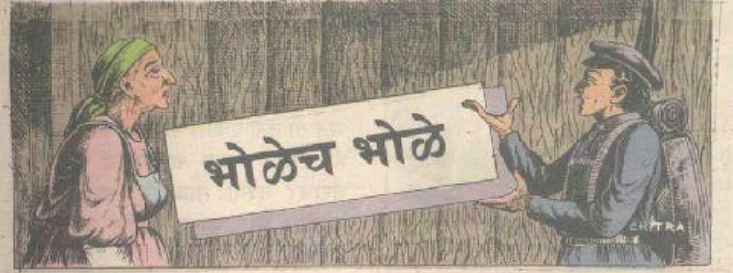 भोळेच भोळे
CHITRA